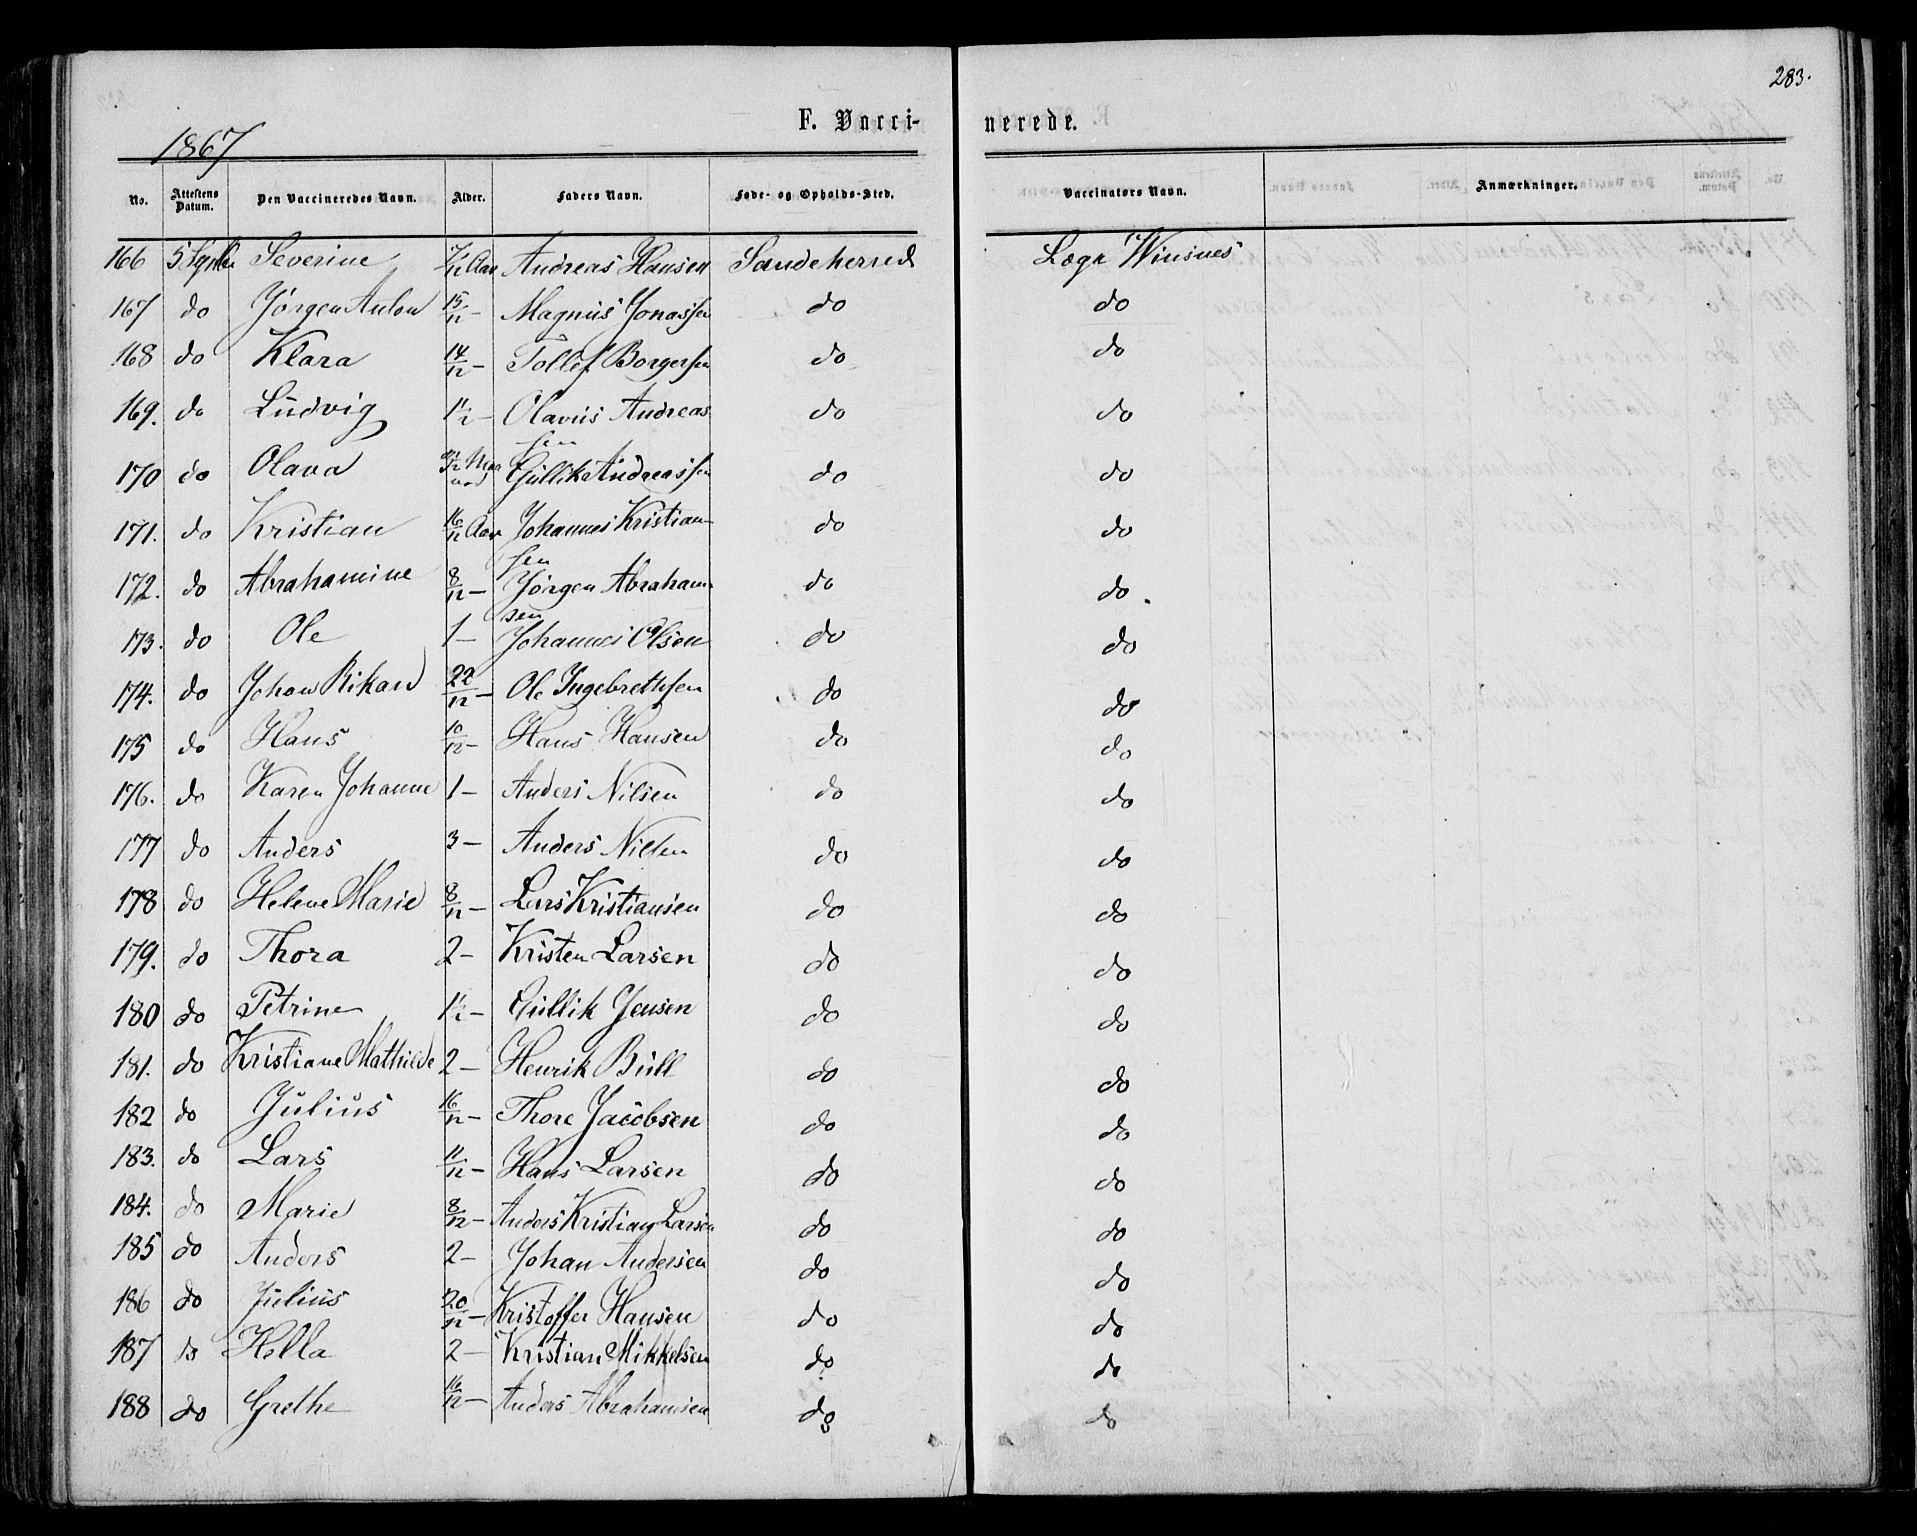 283.
F. Vacci- nerede.
1867
No. Attestens Datum. Den Vaccineredes Navn. Alder. Faders Navn. Føde- og Opholds-Sted. Vaccinators Navn. Anmærkninger.
166 5 Septbr Severine 7/12 Aar Andreas Hansen Sandeherred Læge Winsnes
167 do Jörgen Anton 15/12 – Magnus Jonassen do do
168 do Klara 14/12 – Tollef Borgersen do do
169. do Ludvig 1 1/2 – Olavus Andreas sen do do
170 do Olava Maa ned Gullik Andreassen do do
171. do Kristian 16/12 Aar Johannes Kristian- sen do do
172. do Abrahamine 8/12 – Jörgen Abraham- sen do do
173. do Ole 1 – Johannes Olsen do do
174. do Johan Rikard 22/12 – Ole Ingebrethsen do do
175 do Hans 10/12 – Hans Hansen do do
176. do Karen Johanne 1 – Anders Nilsen do do
177 do Anders 3 – Anders Nilsen do do
178 do Helene Marie 8/12 – Lars Kristiansen do do
179. do Thora 2 – Kristen Larsen do do
180 do Petrine 1 1/2 – Gullik Jensen do do
181. do Kristiane Mathilde 2 – Henrik Bull do do
182 do Julius 16/12 – Thore Jacobsen do do
183. do Lars 11/12 – Hans Larsen do do
184. do Marie 8/12 – Anders Kristian Larsen do do
185 do Anders 2 – Johan Andersen do do
186 do Julius 20/12 – Kristoffer Hansen do do
187 do Hella 2 – Kristian Mikkelsen do do
188 do Grethe 16/12 – Anders Abrahamsen do do